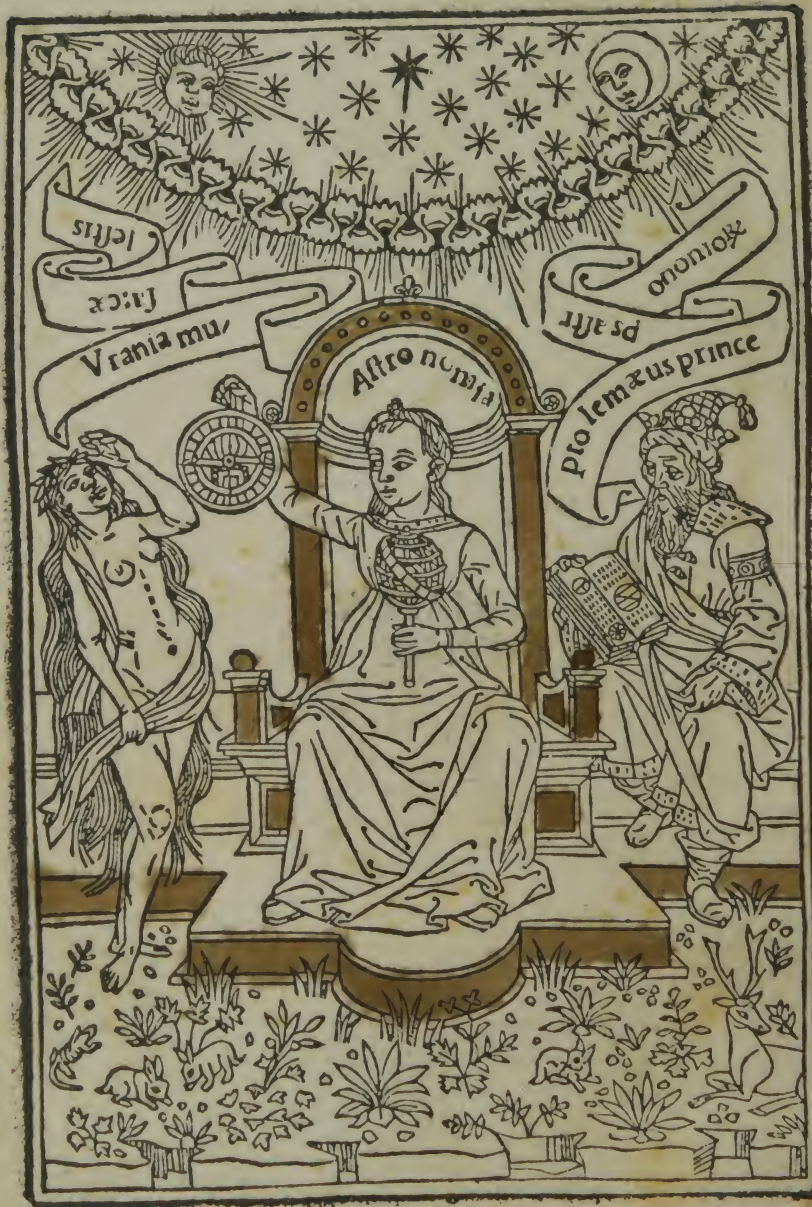 Vrania mu/
ſa cæ
leſtis
Aſtro nomia
pto lemæus prince
ps aſtr
onomoꝝ